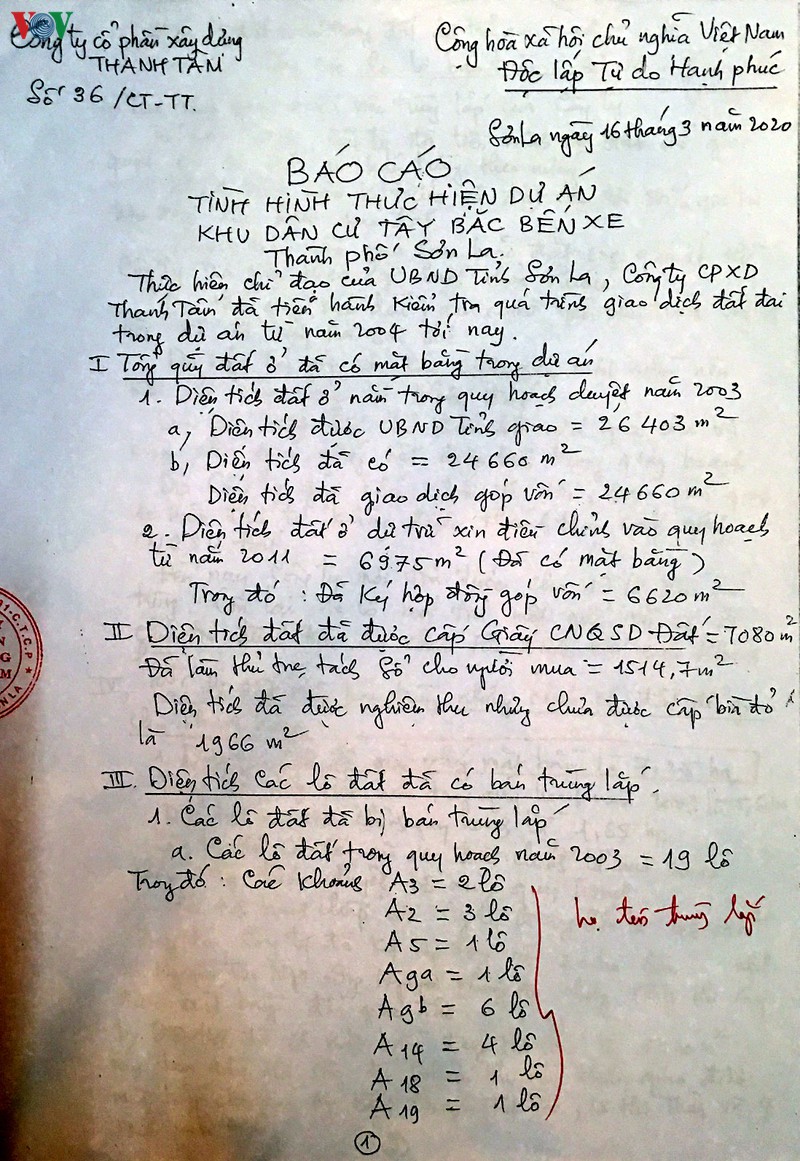 VOV
Công ty cổ phần xây dựng
THANH TÂM
Số 36/CT-TT.
Cộng hòa xã hội chủ nghĩa Việt Nam
Độc lập Tự do Hạnh phúc
Sơn La ngày 16 tháng 3 năm 2020
BÁO CÁO
TÌNH HÌNH THỰC HIỆN DỰ ÁN
KHU DÂN CƯ TÂY BẮC BẾN XE
Thành phố Sơn La.
Thực hiện chỉ đạo của UBND Tỉnh Sơn La, Công ty CPXD
Thanh Tâm đã tiến hành Kiểm tra quá trình giao dịch đất đai
trong dự án từ năm 2004 tới nay.
I Tổng quỹ đất ở đã có mặt bằng trong dự án
1. Diện tích đất ở nằm trong quy hoạch duyệt năm 2003
a, Diện tích được UBND Tỉnh giao = 26 403 m²
b, Diện tích đã có = 24 660 m²
Diện tích đã giao dịch góp vốn = 24 660 m²
2. Diện tích đất ở dự trữ xin điều chỉnh vào quy hoạch
từ năm 2011 = 6975 m² (Đã có mặt bằng)
Trong đó : Đã Ký hợp đồng góp vốn = 6620 m²
II Diện tích đất đã được cấp Giấy CNQSD Đất = 7080 m²
Đã làm thủ tục tách Sổ cho người mua = 1514,7 m²
Diện tích đã được nghiệm thu nhưng chưa được cấp bìa đỏ
là 1966 m²
III. Diện tích Các lô đất đã có bán trùng lắp.
1. Các lô đất đã bị bán trùng lắp
a. Các lô đất trong quy hoạch năm 2003 = 19 lô
Trong đó : Các Khoảng A3 = 2 lô
A2 = 3 lô
A5 = 1 lô
A9a = 1 lô
A9b = 6 lô
A14 = 4 lô
A18 = 1 lô
A19 = 1 lô
trùng lắp
1